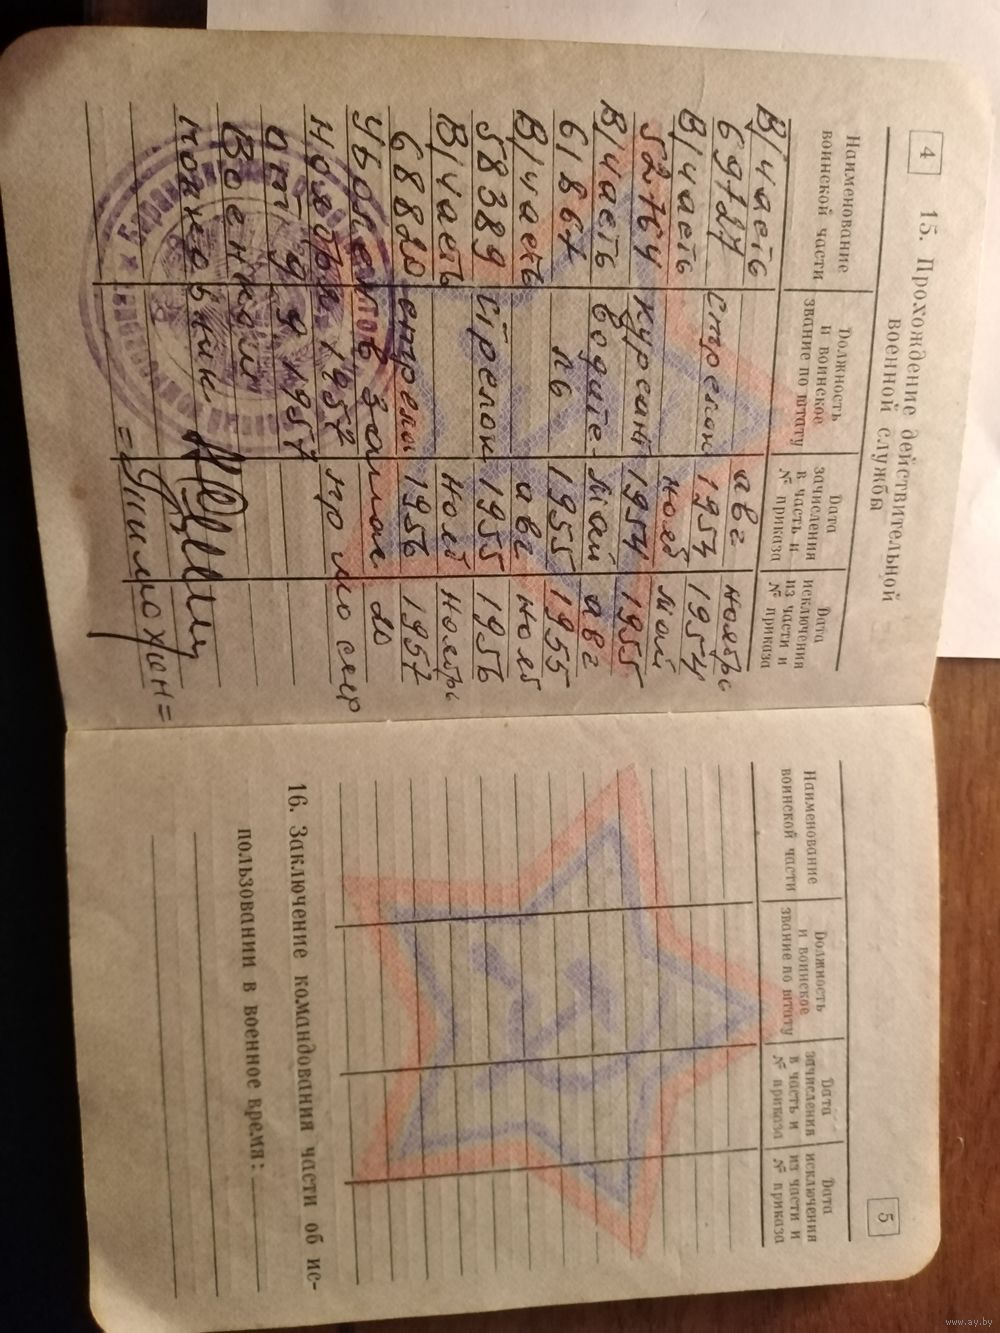 4
15. Прохождение действительной
военной службы
Наименование
воинской части
Должность
и воинское
звание по штату
Дата
зачисления
в часть и
№ приказа
Дата
исключения
из части и
№ приказа
В/часть авг ноябрь
69727 стрелок 1953 1954
В/часть нояб май
52764 курсант 1954 1955
В/часть водите- май авг
61867 ль 1955 1955
В/часть авг нояб
58389 стрелок 1955 1956
В/часть нояб ноябрь
68820 стрелок 1956 1957
Уволен в запас 20
ноября 1957
от 9 1957
Военком
полковник
5
Наименование
воинской части
Должность
и воинское
звание по штату
Дата
зачисления
в часть и
№ приказа
Дата
исключения
из части и
№ приказа
16. Заключение командования части об ис-
пользовании в военное время:
www.ay.by